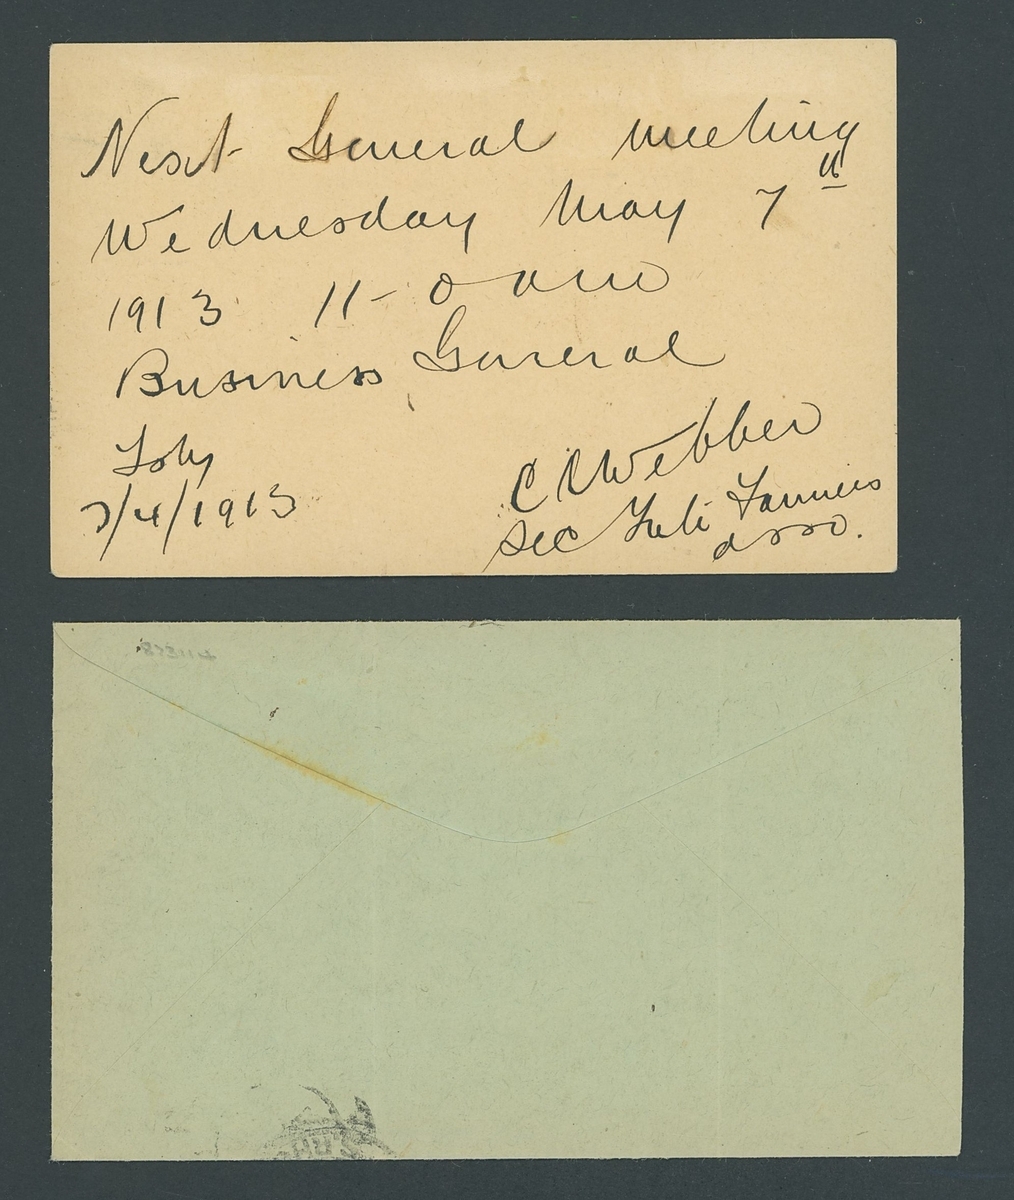 Next General meeting
Wednesday May 7th
1913 11-0 am
Business General
7/4/1913
C C Webber
Sec Farmers
Asso.